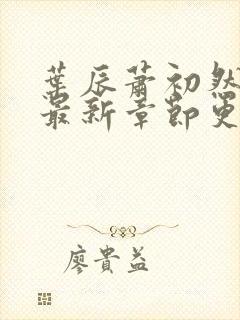 葉辰蕭初然
最新章節更
廖貴益